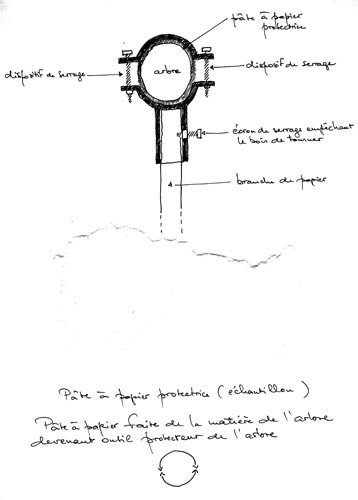 pâte à papier
protectrice
dispositif de serrage
arbre
dispositif de serrage
écrou de serrage empêchant
le bois de tourner
branche de papier
Pâte à papier protectrice (échantillon)
Pâte à papier faite de la matière de l'arbre
devenant outil protecteur de l'arbre